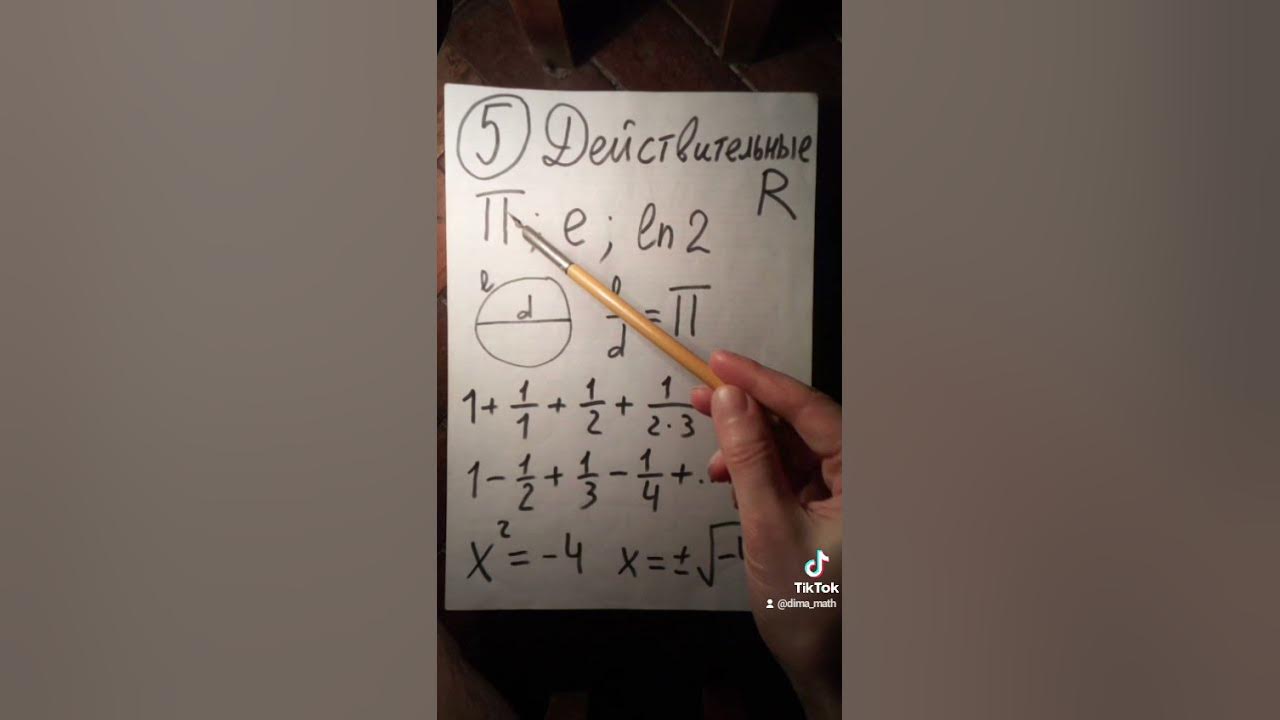 5 Действительные
R
π; e; ln 2
l
d
l/d = π
1 + 1/1 + 1/2 + 1/(2·3)
1 - 1/2 + 1/3 - 1/4 + ..
x² = -4 x = ±√-4
TikTok
@dima_math